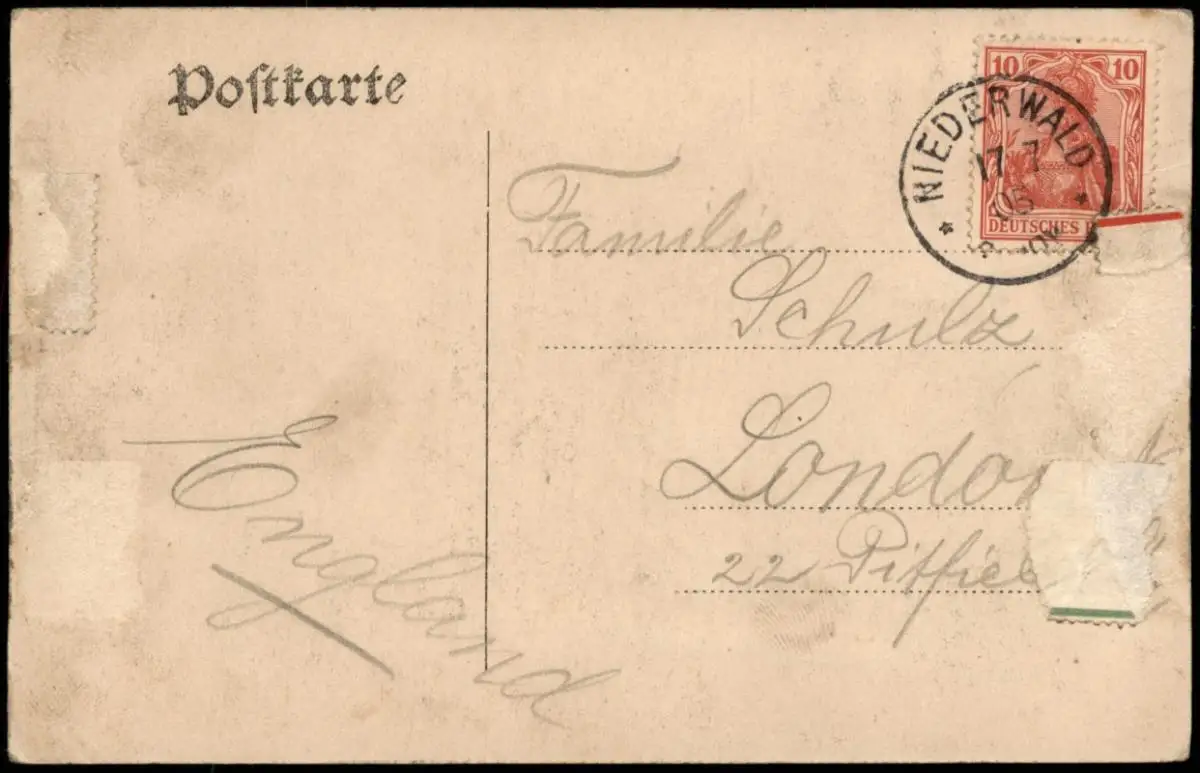 Postkarte
10 10
DEUTSCHES R
NIEDERWALD
17 7
05
Familie
Schulz
London
22
England